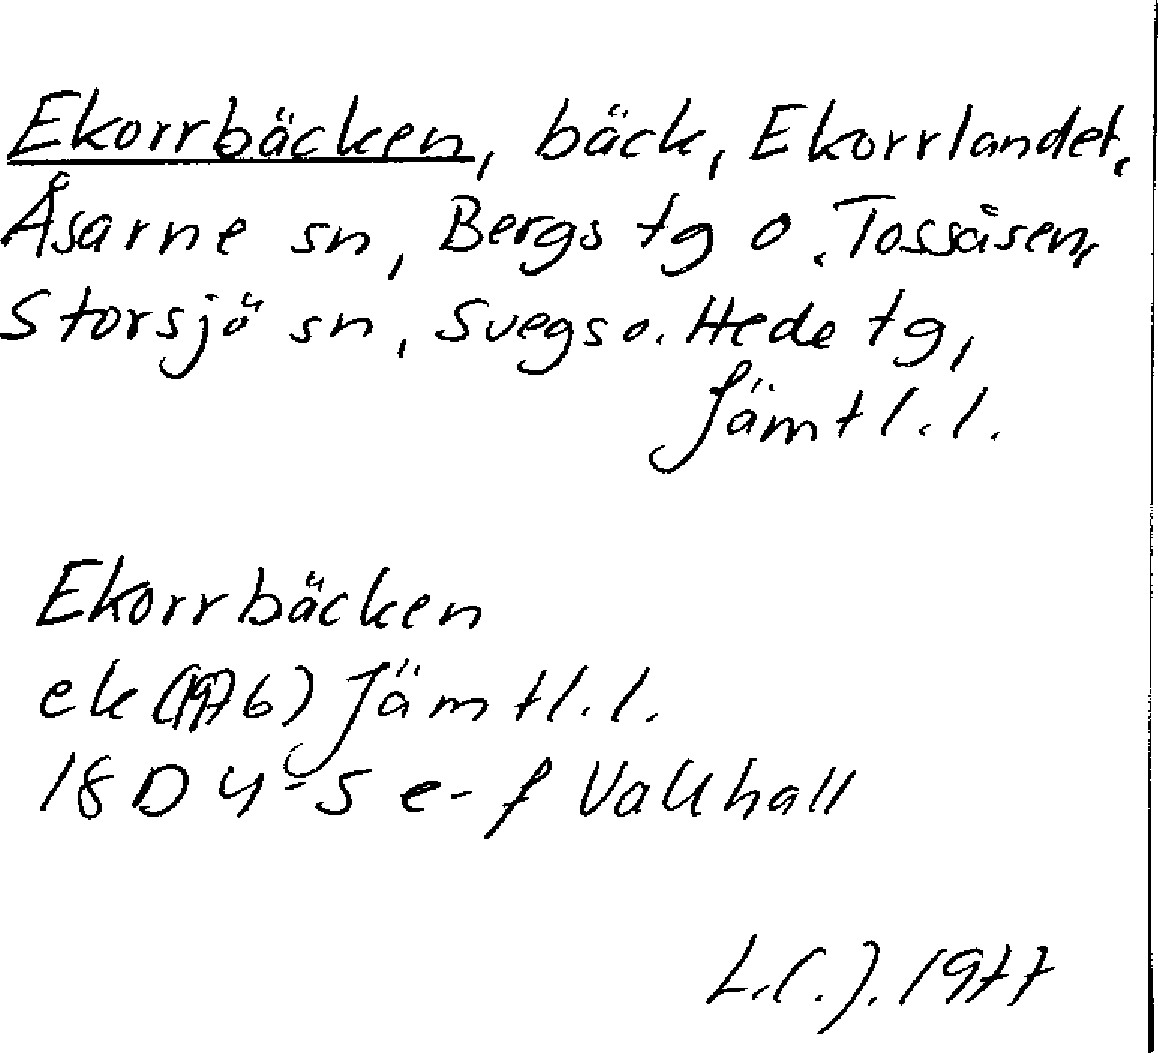 Ekorrbäcken, bäck, Ekorrlandet,
Åsarne sn, Bergs tg o. Tossåsen,
Storsjö sn, Svegs o. Hede tg,
Jämtl.l.
Ekorrbäcken
ek (1976) Jämtl.l.
18D 4-5 e-f Vallhall
1977